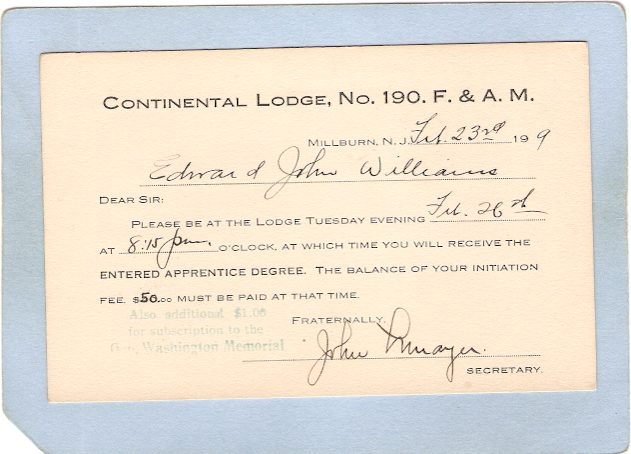 CONTINENTAL LODGE, NO. 190. F. & A. M.
MILLBURN, N. J. Feb. 23rd 19 9
Edward John Williams
DEAR SIR:
PLEASE BE AT THE LODGE TUESDAY EVENING Feb. 26th
AT 8:15 pm. O'CLOCK, AT WHICH TIME YOU WILL RECEIVE THE
ENTERED APPRENTICE DEGREE. THE BALANCE OF YOUR INITIATION
FEE. $50.00 MUST BE PAID AT THAT TIME.
Also additional $1.00
for subscription to the
Geo. Washington Memorial
FRATERNALLY,
John
SECRETARY.